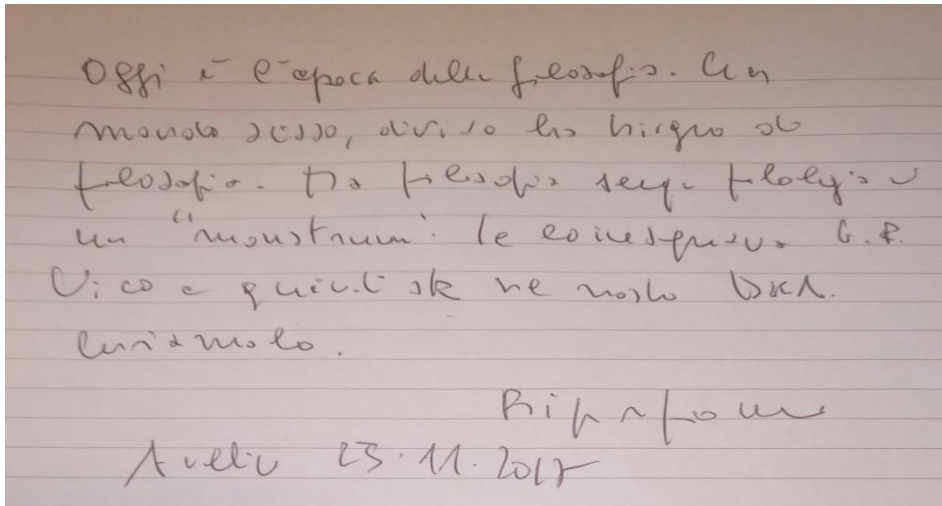 Oggi è l'epoca della filosofia. Un
mondo scisso, diviso ha bisogno di
filosofia. Ma filosofia senza filologia è
un "monstrum". Ce lo insegnava G.B.
Vico e quindi sta nel nostro DNA.
Curiamolo.
Avella 23.11.2017